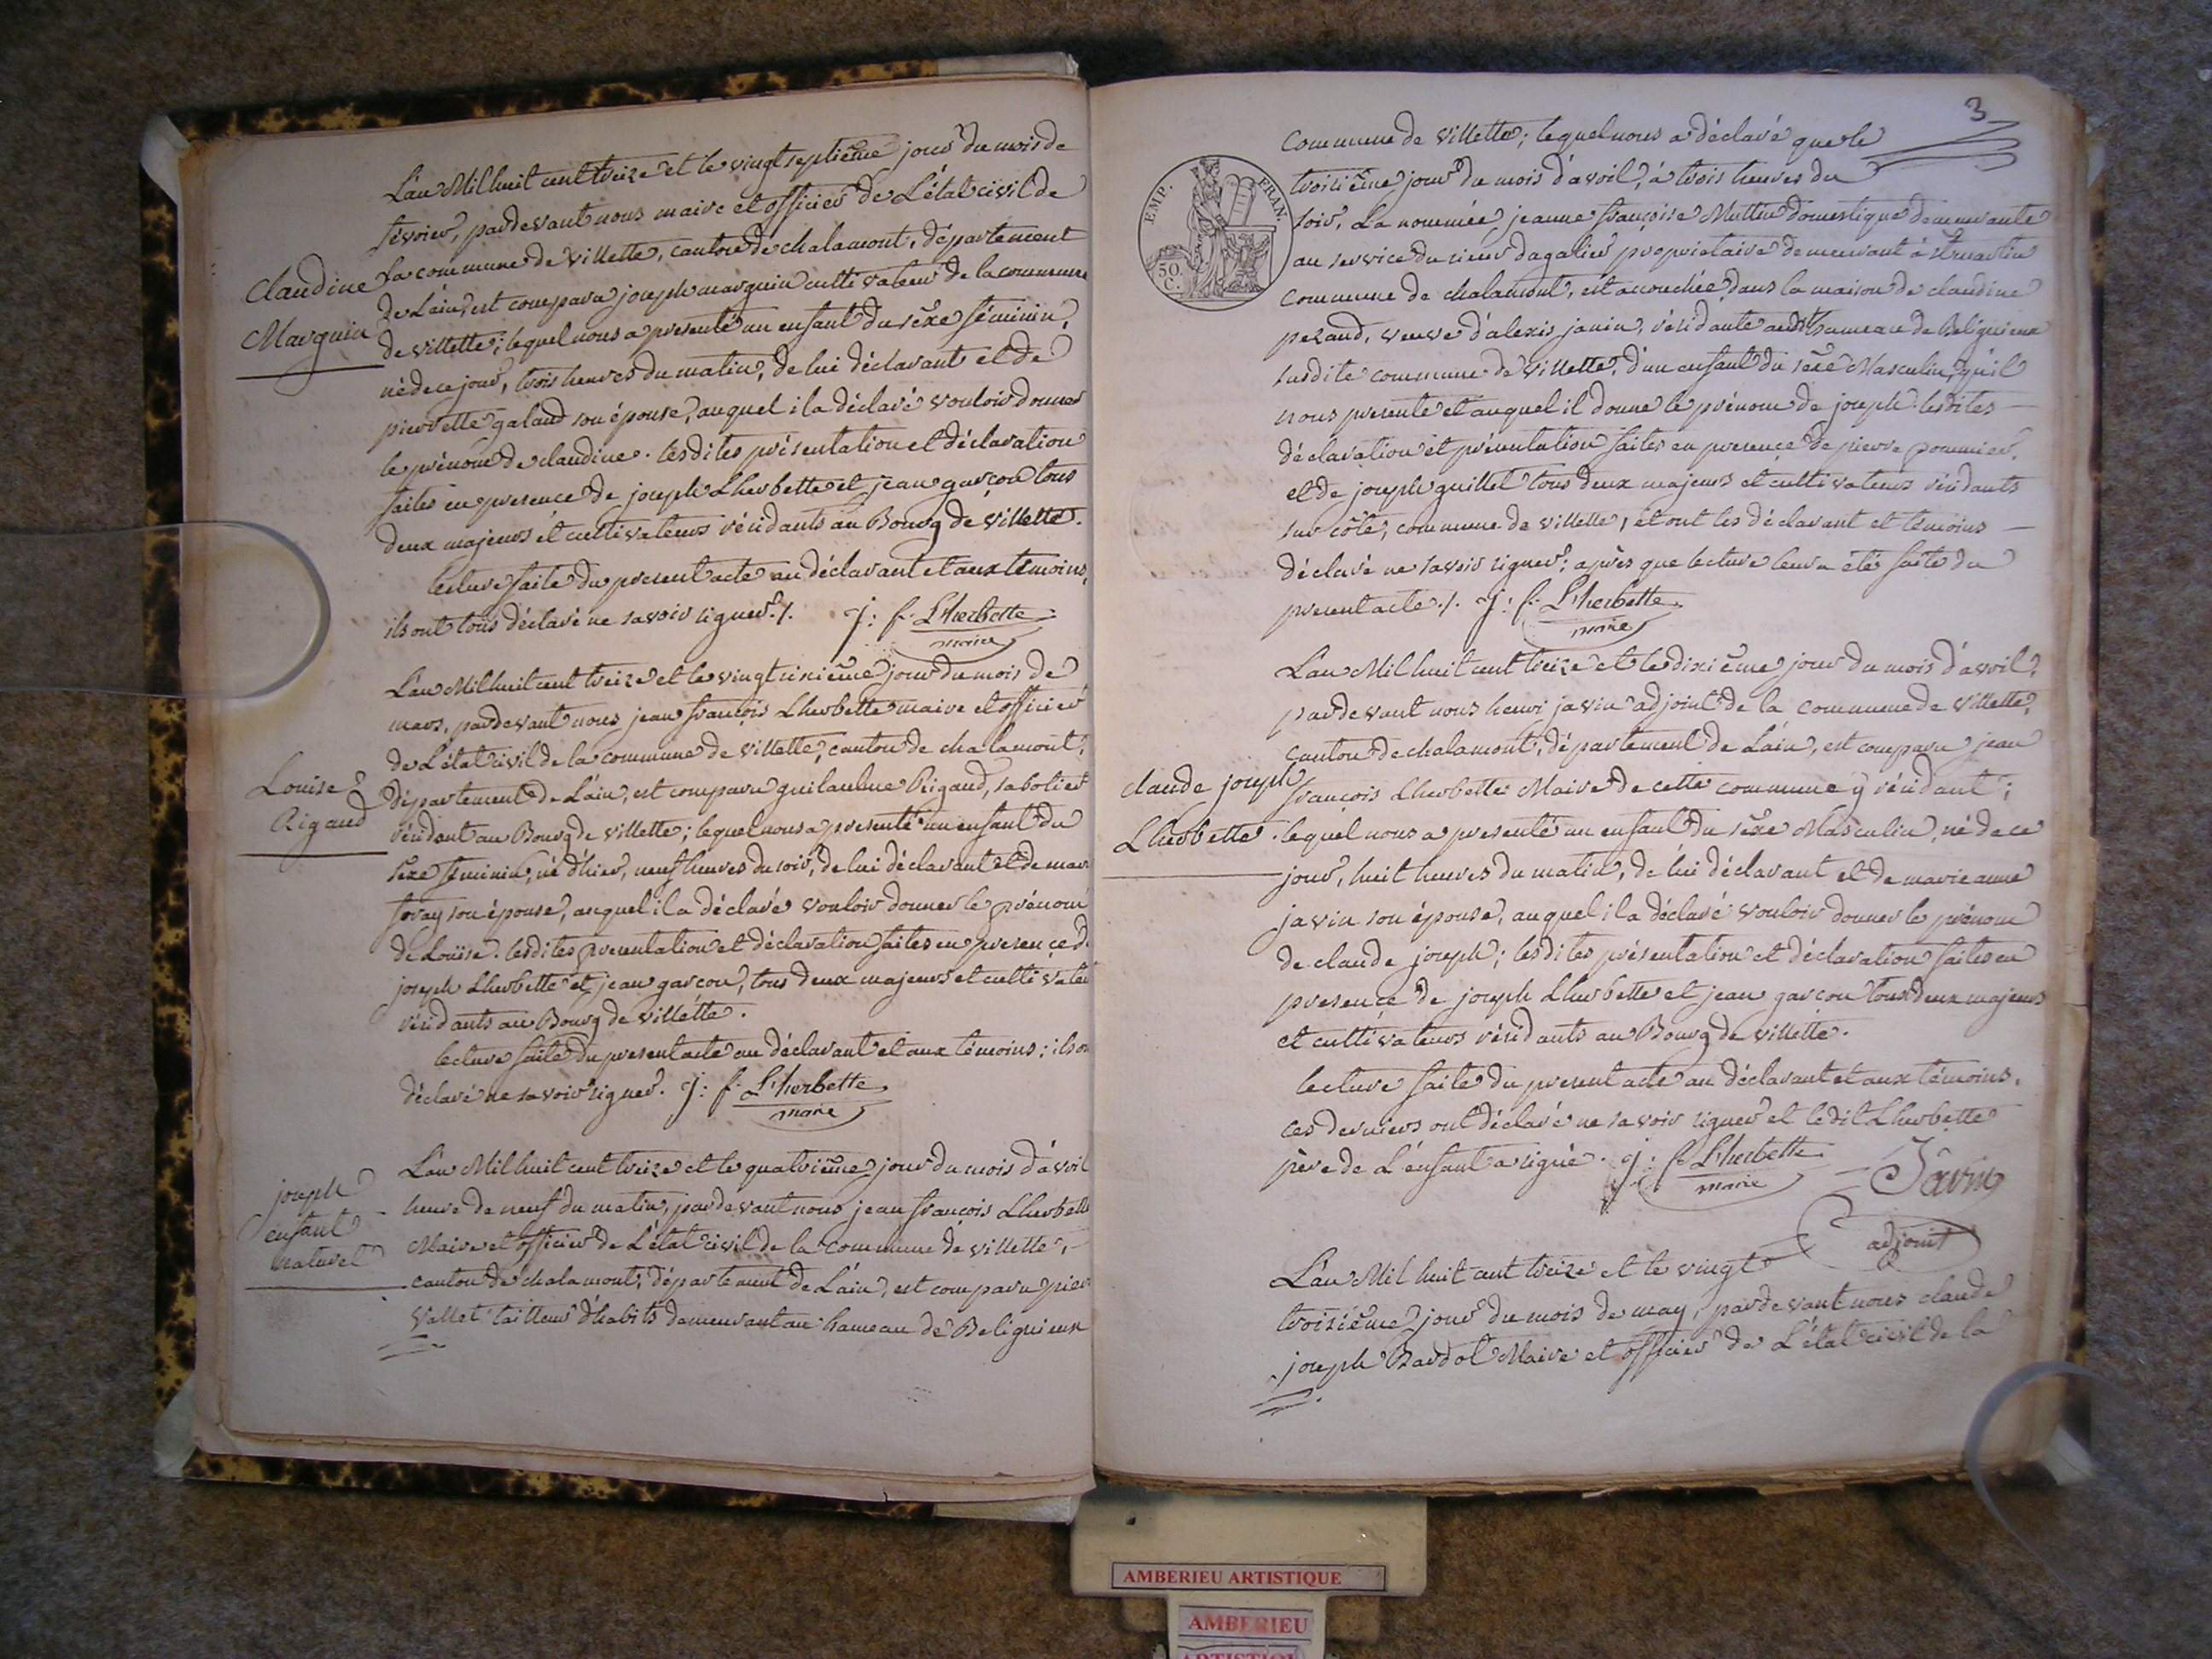 L'an Mil huit cent treize et le vingt septième jour du mois de
févroier, pardevant nous maire et officier de L'état civil de
la commune de Villette, canton de chalamont, département
Claudine
Marguin
de L'ain, est comparu joseph marguin cultivateur de la commune
de villette; lequel nous a presenté un enfant du sexe féminin,
né de ce jour, trois heures du matin, de lui déclarant et de
pierrette galand son épouse, auquel il a déclaré vouloir donner
le prénom de claudine. lesdites présentation et déclaration
faites en presence de joseph Lherbette et jean garçon tous
deux majeurs et cultivateurs résidants au Bourg de villette.
lecture faite du present acte au déclarant et aux témoins,
ils ont tous déclaré ne savoir signer ./. j: f. L'herbette
maire
L'an Mil huit cent treize et le vingt sixième jour du mois de
mars, pardevant nous jean françois Lherbette maire et officier
de L'état civil de la commune de villette, canton de chalamont,
Louise
Rigaud
département de L'ain, est comparu guilaulme Rigaud, sabotier
résidant au Bourg de villette; lequel nous a presenté un enfant du
sexe féminin, né d'hier, neuf heures du soir, de lui déclarant et de mari
foray son épouse, auquel il a déclaré vouloir donner le prénom
de Louise. lesdites presentation et déclaration faites en presence d
joseph Lherbette et jean garçon, tous deux majeurs et cultivateu
résidants au Bourg de villette.
lecture faite du present acte au déclarant et aux témoins; ils on
déclaré ne savoir signer. j: f. L'herbette
maire
joseph
enfant
naturel
L'an Mil huit cent treize et le quatrième jour du mois d'avril
heure de neuf du matin, pardevant nous jean françois Lherbette
Maire et officier de L'état civil de la commune de villette,
canton de chalamont, département de L'ain, est comparu pier
Vallet tailleur d'habits demeurant au hameau de Beligneux
3
EMP. FRAN.
50.
C.
commune de villette; lequel nous a déclaré que le
troisième jour du mois d'avril, à trois heures du
soir, La nommée jeanne françoise Muttin domestique demeurante
au service du sieur dagalier proprietaire demeurant à st martin
commune de chalamont, est accouchée dans la maison de claudine
perand, veuve d'alexis janin, résidante audit hameau de Beligneux
susdite commune de Villette, d'un enfant du sexe Masculin, qu'il
nous presente et auquel il donne le prénom de joseph. lesdites
déclaration et présentation faites en presence de pierre pommier,
et de joseph guillet tous deux majeurs et cultivateurs résidants
sur côte, commune de villette, et ont les déclarant et témoins
déclaré ne savoir signer; après que lecture leur a été faite du
present acte ./. j: f. L'herbette
maire
L'an Mil huit cent treize et le dixième jour du mois d'avril,
pardevant nous henri javin adjoint de la commune de villette,
canton de chalamont, département de L'ain, est comparu jean
claude joseph
Lherbette.
françois Lherbette Maire de cette commune y résidant;
lequel nous a presenté un enfant du sexe Masculin, né de ce
jour, huit heures du matin, de lui déclarant et de marie anne
javin son épouse, auquel il a déclaré vouloir donner le prénom
de claude joseph; lesdites présentation et déclaration faites en
presence de joseph Lherbette et jean garçon tous deux majeurs
et cultivateurs résidants au Bourg de villette.
lecture faite du present acte au déclarant et aux témoins,
ces derniers ont déclaré ne savoir signer et le dit Lherbette
père de L'enfant a signé. j: f. L'herbette
maire
Javin
adjoint
L'an Mil huit cent treize et le vingt
troisième jour du mois de may, pardevant nous claude
joseph Bardot Maire et officier de L'état civil de la
AMBERIEU ARTISTIQUE
AMBERIEU
ARTISTIQU